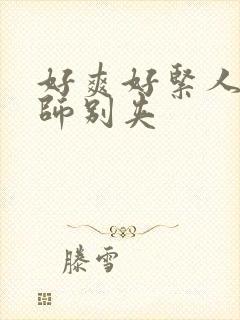 好爽好緊人
師别失
滕雪